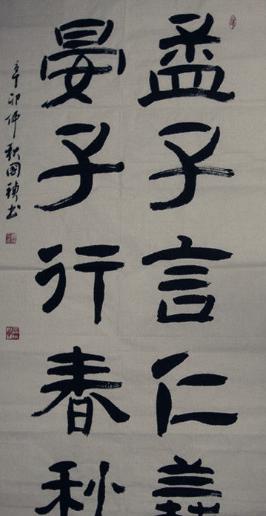 孟子言仁義
晏子行春秋
辛卯仲秋國祥书